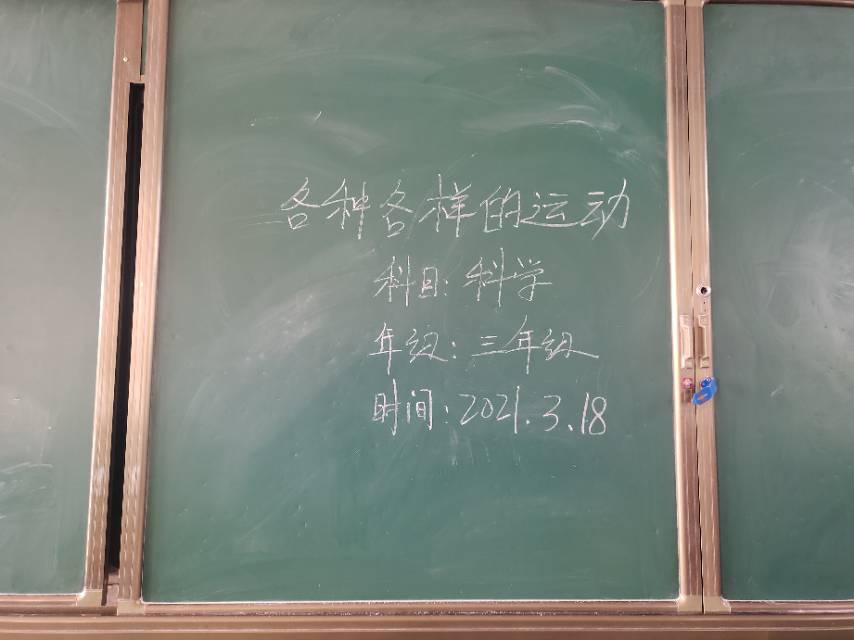 各种各样的运动
科目:科学
年级:三年级
时间:2021.3.18